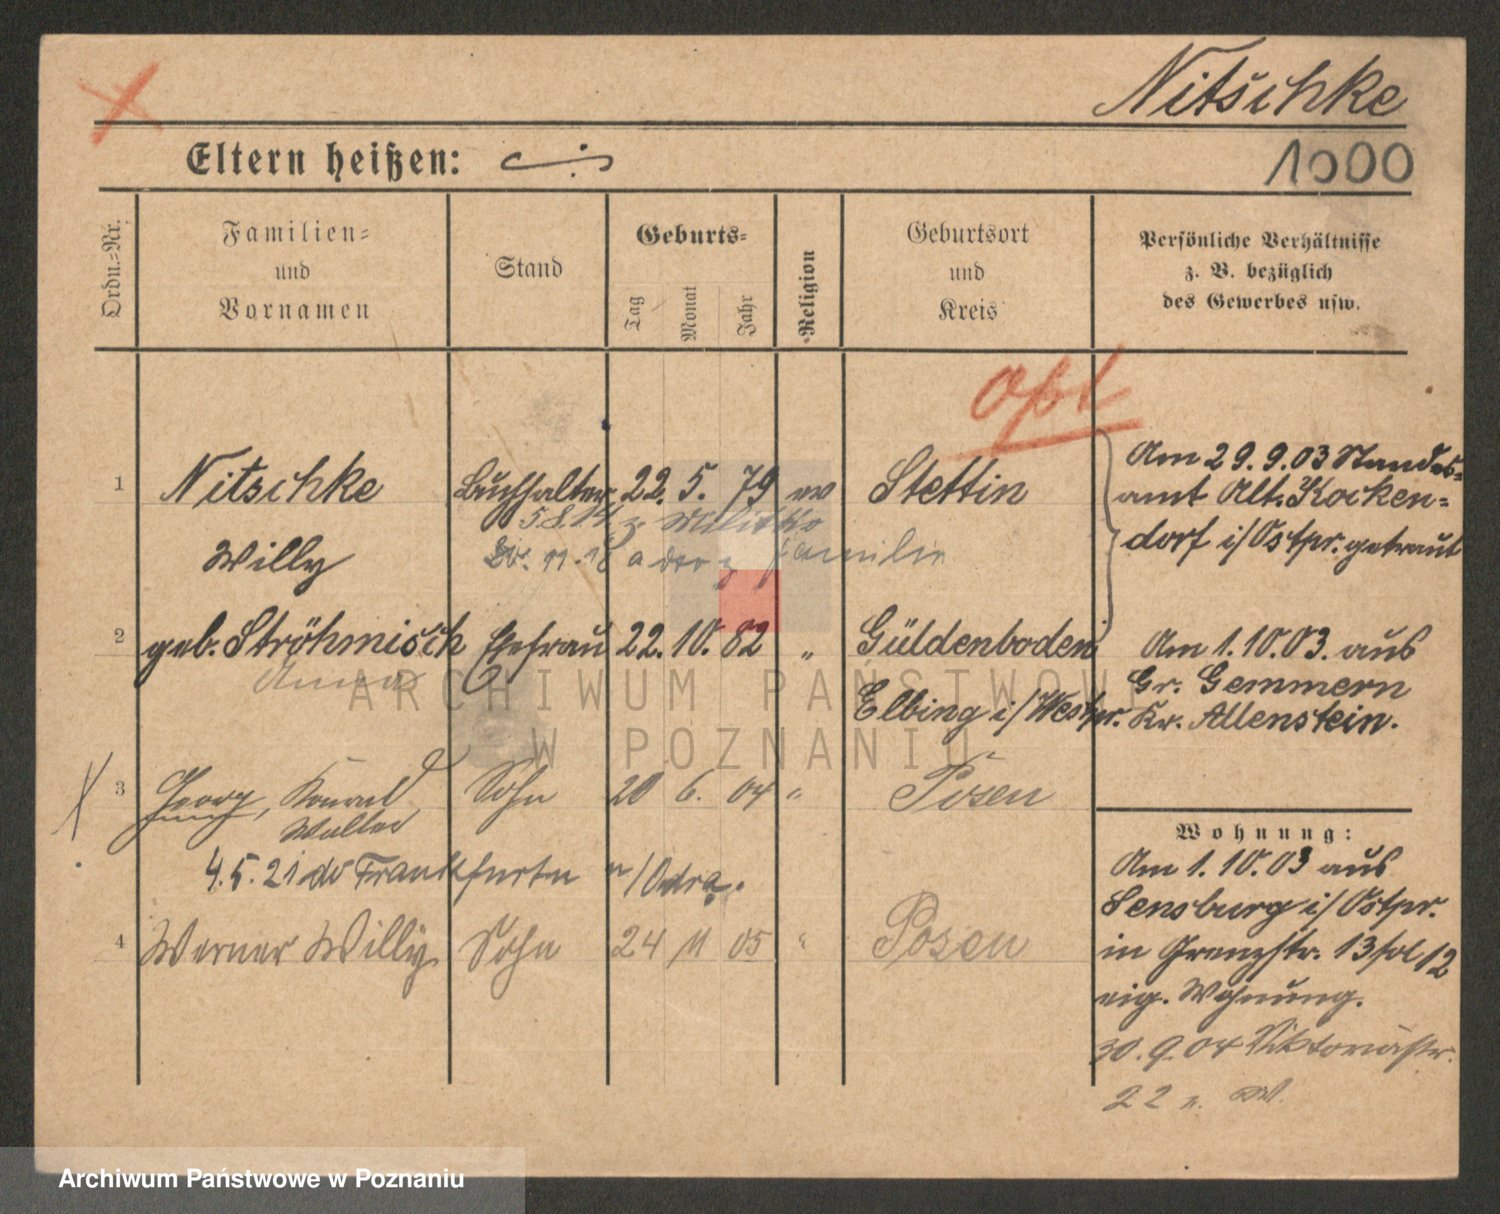 Nitschke
Eltern heißen:
1000
Ordn.-Nr.
Familien- und Vornamen
Stand
Geburts-
Tag
Monat
Jahr
Religion
Geburtsort und Kreis
Persönliche Verhältnisse z. B. bezüglich des Gewerbes usw.
1 Nitschke Buchhalter 22. 5. 79 ev Stettin
Willy
Am 29.9.03 Standes-
amt Alt. Kocken-
dorf i/Ostpr. getraut
2 geb. Ströhmisch Ehefrau 22. 10. 82 " Güldenboden
Anna
Elbing i/Westpr.
Am 1.10.03. aus
Gr. Gemmern
Kr. Allenstein.
3 Georg, Konrad Sohn 20 6. 04 " Posen
Walter
4.5.21 Frankfurt a/Odra.
4 Werner Willy Sohn 24 11 05 " Posen
Wohnung:
Am 1.10.03 aus
Sensburg i/Ostpr.
in Grenzstr. 13
eig. Wohnung.
30.9.04 Viktoriastr.
22
ARCHIWUM PAŃSTWOWE
W POZNANIU
Archiwum Państwowe w Poznaniu